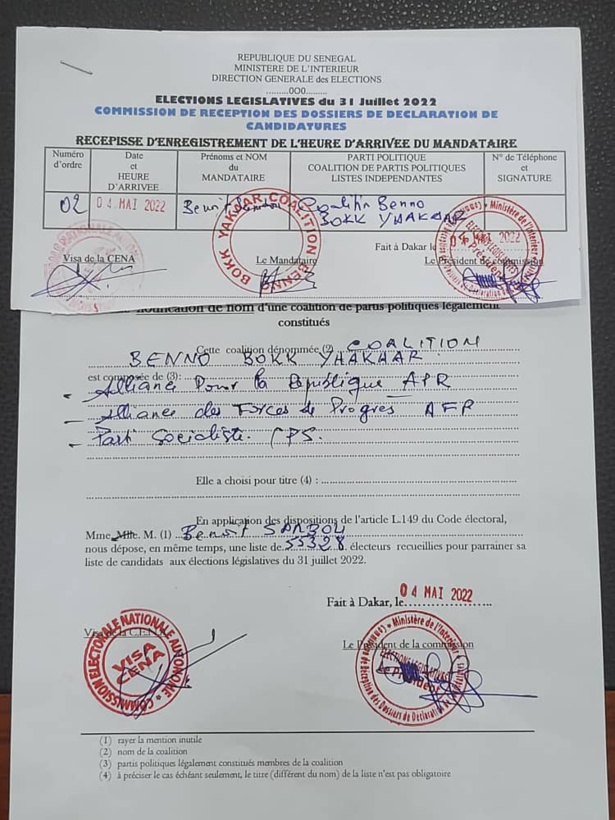 REPUBLIQUE DU SENEGAL
MINISTERE DE L'INTERIEUR
DIRECTION GENERALE des ELECTIONS
.........000.........
ELECTIONS LEGISLATIVES du 31 Juillet 2022
COMMISSION DE RECEPTION DES DOSSIERS DE DECLARATION DE
CANDIDATURES
RECEPISSE D'ENREGISTREMENT DE L'HEURE D'ARRIVEE DU MANDATAIRE
Numéro d'ordre
Date et HEURE D'ARRIVEE
Prénoms et NOM du MANDATAIRE
PARTI POLITIQUE COALITION DE PARTIS POLITIQUES LISTES INDEPENDANTES
N° de Téléphone et SIGNATURE
02
04 MAI 2022
Benoit
Coalition Benno
BOKK YAAKAAR
Fait à Dakar le
2022
Visa de la CENA
Le Mandataire
Le Président de commission
BOKK YAKAAR COALITION BENNO
notification de nom d'une coalition de partis politiques légalement
constitués
Cette coalition dénommée (2) COALITION
BENNO BOKK YAAKAAR
est composée de (3):
- Alliance Pour la République APR
- Alliance des Forces de Progres AFP
- Parti Socialiste PS.
Elle a choisi pour titre (4) :
En application des dispositions de l'article L.149 du Code électoral,
Mme. Mlle. M. (1) Benoit SAMBOU
nous dépose, en même temps, une liste de 55328 électeurs recueillies pour parrainer sa
liste de candidats aux élections législatives du 31 juillet 2022.
Fait à Dakar, le 04 MAI 2022
Visa de la CENA
Le Président de la commission
COMMISSION ELECTORALE NATIONALE AUTONOME
VISA CENA
Ministère de l'Intérieur
ELECTIONS LEGISLATIVES
Le Président
(1) rayer la mention inutile
(2) nom de la coalition
(3) partis politiques légalement constitués membres de la coalition
(4) à préciser le cas échéant seulement, le titre (différent du nom) de la liste n'est pas obligatoire